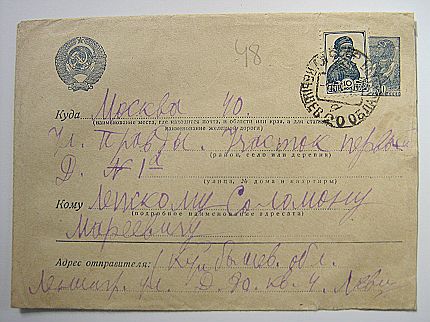 48
Куда Москва 40.
(наименование места, где находится почта, и области или края, а для станций
наименование железной дороги)
Ул. Правды. Участок первый
(район, село или деревня)
Д. № 1а
(улица, № дома и квартиры)
Кому Лепскому Соломону
(подробное наименование адресата)
Адрес отправителя: Куйбышев. обл.
Д. кв. 4.